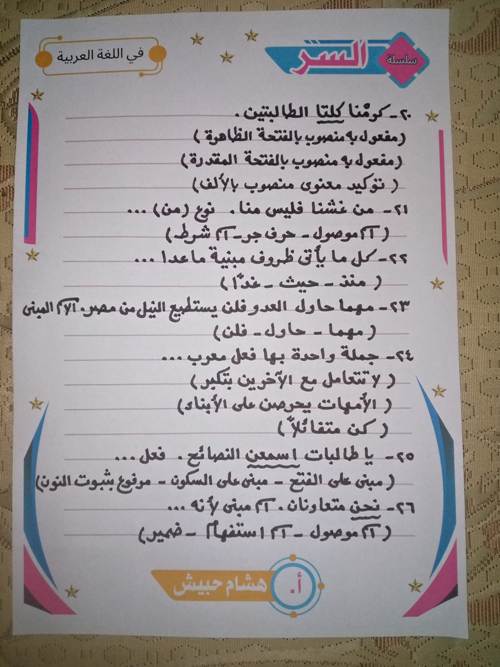 سلسلة السر
في اللغة العربية
٢٠- كرمنا كلتا الطالبتين.
(مفعول به منصوب بالفتحة الظاهرة)
(مفعول به منصوب بالفتحة المقدرة)
(توكيد معنوى منصوب بالألف)
٢١- من غشنا فليس منا. نوع (من) ...
(اسم موصول - حرف جر - اسم شرط)
٢٢- كل ما يأتى ظروف مبنية ماعدا ...
(منذ - حيث - غدًا)
٢٣- مهما حاول العدو فلن يستطيع النيل من مصر. الاسم المبنى
(مهما - حاول - فلن)
٢٤- جملة واحدة بها فعل معرب ...
(لا تتعامل مع الآخرين بتكبر)
(الأمهات يحرصن على الأبناء)
(كن متفائلاً)
٢٥- يا طالبات اسمعن النصائح. فعل ...
(مبنى على الفتح - مبنى على السكون - مرفوع بثبوت النون)
٢٦- نحن متعاونان. اسم مبنى لأنه ...
(اسم موصول - اسم استفهام - ضمير)
أ. هشام حبيش